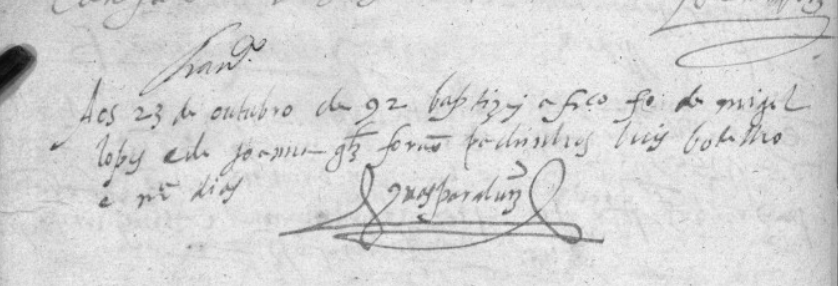 franᶜᵒ
Aos 23 de outubro de 92 baptizej a frᶜo fo de migel
lopes e de joanna glz forão padrinhos luis botelho
e mª dias
guaspar aluz